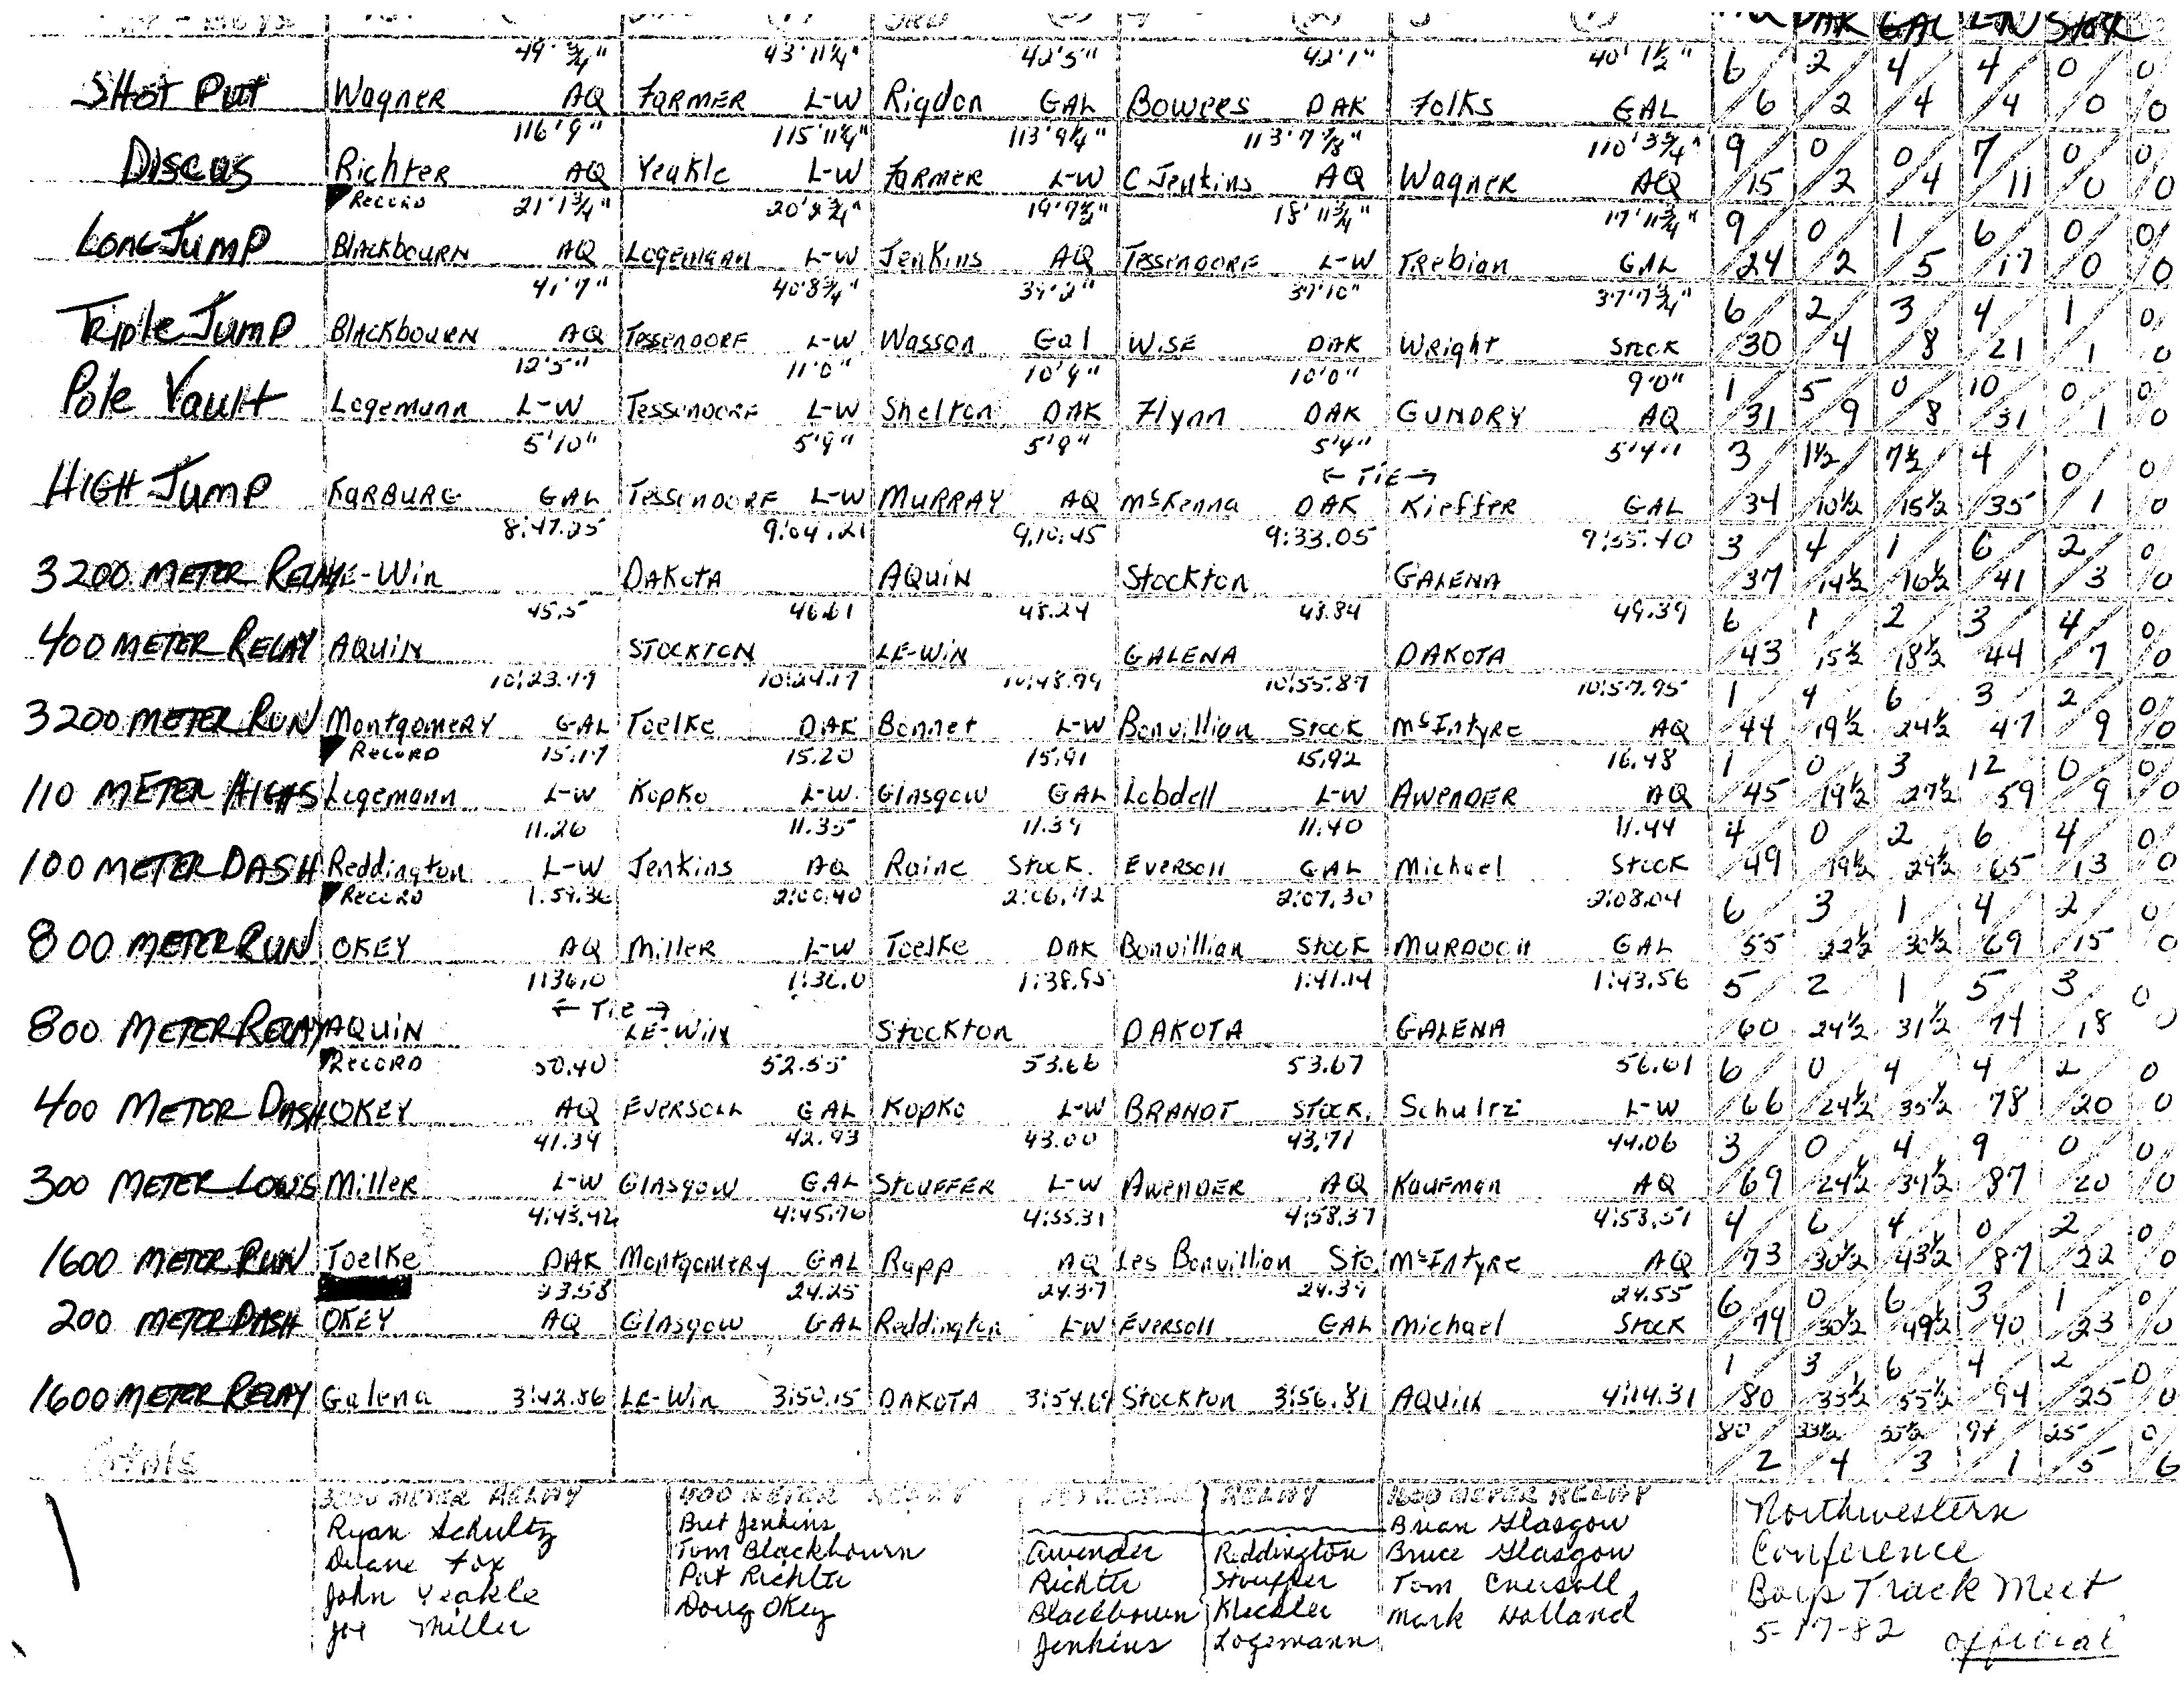 AQ DAK GAL L-W Stock
49' ¾" 43'11¼" 42'5" 42'1" 40' 1½" 6 2 4 4 0 0
Shot Put Wagner AQ Farmer L-W Rigdon GAL Bowers DAK Folks GAL 6 2 4 4 0 0
116'9" 115'11¼" 113'9¼" 113'7⅞" 110'3¾" 9 0 0 7 0 0
Discus Richter AQ Yeakle L-W Farmer L-W C Jenkins AQ Wagner AQ 15 2 4 11 0 0
Record 21'1¾" 20'2¾" 19'7½" 18'11¾" 17'11¾" 9 0 1 6 0 0
Long Jump Blackbourn AQ Logemann L-W Jenkins AQ Tessendorf L-W Trebian GAL 24 2 5 17 0 0
41'7" 40'8¾" 39'2" 37'10" 37'7¾" 6 2 3 4 1 0
Triple Jump Blackbourn AQ Tessendorf L-W Wasson Gal Wise DAK Wright Stock 30 4 8 21 1 0
12'5" 11'0" 10'9" 10'0" 9'0" 1 5 0 10 0 0
Pole Vault Logemann L-W Tessendorf L-W Shelton DAK Flynn DAK GUNDRY AQ 31 9 8 31 1 0
5'10" 5'9" 5'9" 5'4" 5'4" 3 1½ 7½ 4 0 0
← Tie →
High Jump Karburg GAL Tessendorf L-W MURRAY AQ McKenna DAK Kieffer GAL 34 10½ 15½ 35 1 0
8:47.25 9:04.21 9:10.45 9:33.05 9:55.40 3 4 1 6 2 0
3200 Meter Relay Le-Win DAKOTA AQUIN Stockton GALENA 37 14½ 16½ 41 3 0
45.5 46.61 48.24 48.84 49.39 6 1 2 3 4 0
400 Meter Relay AQUIN STOCKTON LE-WIN GALENA DAKOTA 43 15½ 18½ 44 7 0
10:23.19 10:24.17 10:48.99 10:55.87 10:57.95 1 4 6 3 2 0
3200 Meter Run Montgomery GAL Toelke DAK Bonnet L-W Bonvillian Stock McIntyre AQ 44 19½ 24½ 47 9 0
Record 15.17 15.20 15.91 15.92 16.48 1 0 3 12 0 0
110 Meter Highs Logemann L-W Kopko L-W Glasgow GAL Lobdell L-W Awender AQ 45 19½ 27½ 59 9 0
11.26 11.35 11.39 11.40 11.44 4 0 2 6 4 0
100 Meter Dash Reddington L-W Jenkins AQ Raine Stock. Eversoll GAL Michael Stock 49 19½ 29½ 65 13 0
Record 1:59.36 2:00.40 2:06.72 2:07.30 2:08.04 6 3 1 4 2 0
800 Meter Run OKEY AQ Miller L-W Toelke DAK Bonvillian Stock MURDOCH GAL 55 22½ 30½ 69 15 0
1:36.0 1:36.0 1:38.95 1:41.14 1:43.56 5 2 1 5 3 0
← Tie →
800 Meter Relay AQUIN LE-WIN Stockton DAKOTA GALENA 60 24½ 31½ 74 18 0
Record 50.40 52.55 53.66 53.67 56.61 6 0 4 4 2 0
400 Meter Dash OKEY AQ Eversoll GAL Kopko L-W BRANDT Stock. Schultz L-W 66 24½ 35½ 78 20 0
41.34 42.93 43.00 43.71 44.06 3 0 4 9 0 0
300 Meter Lows Miller L-W Glasgow GAL Stouffer L-W Awender AQ Kaufman AQ 69 24½ 39½ 87 20 0
4:43.42 4:45.70 4:55.31 4:58.37 4:58.51 4 6 4 0 2 0
1600 Meter Run Toelke DAK Montgomery GAL Rapp AQ Les Bonvillion Sto. McIntyre AQ 73 30½ 43½ 87 22 0
23.58 24.25 24.37 24.39 24.55 6 0 6 3 1 0
200 Meter Dash OKEY AQ Glasgow GAL Reddington L-W Eversoll GAL Michael Stock 79 30½ 49½ 90 23 0
1 3 6 4 2 0
1600 Meter Relay Galena 3:42.86 LE-Win 3:50.15 DAKOTA 3:54.69 Stockton 3:56.81 AQUIN 4:14.31 80 33½ 55½ 94 25 0
80 33½ 55½ 94 25 0
Totals 2 4 3 1 5 6
3200 METER RELAY
Ryan Schultz
Duane Fox
John Yeakle
Joe Miller
400 METER RELAY
Bret Jenkins
Tom Blackbourn
Pat Richter
Doug Okey
RELAY
Awender Reddington
Richter Stouffer
Blackbourn Kleckler
Jenkins Logemann
1600 METER RELAY
Brian Glasgow
Bruce Glasgow
Tom Eversoll
Mark Holland
Northwestern
Conference
Boys Track Meet
5-17-82 official